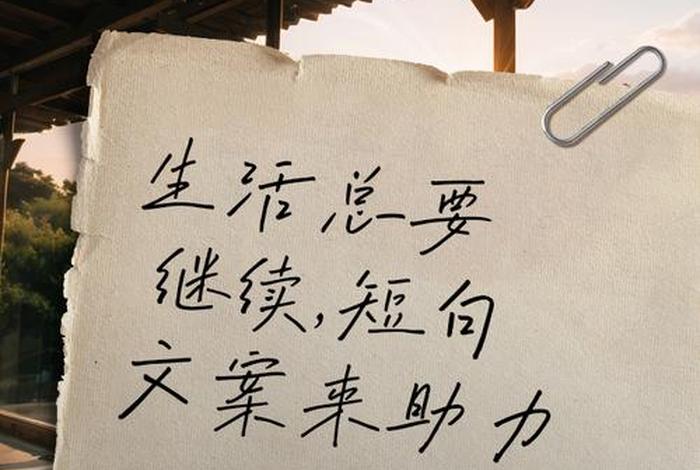 生活总要
继续,短句
文案来助力